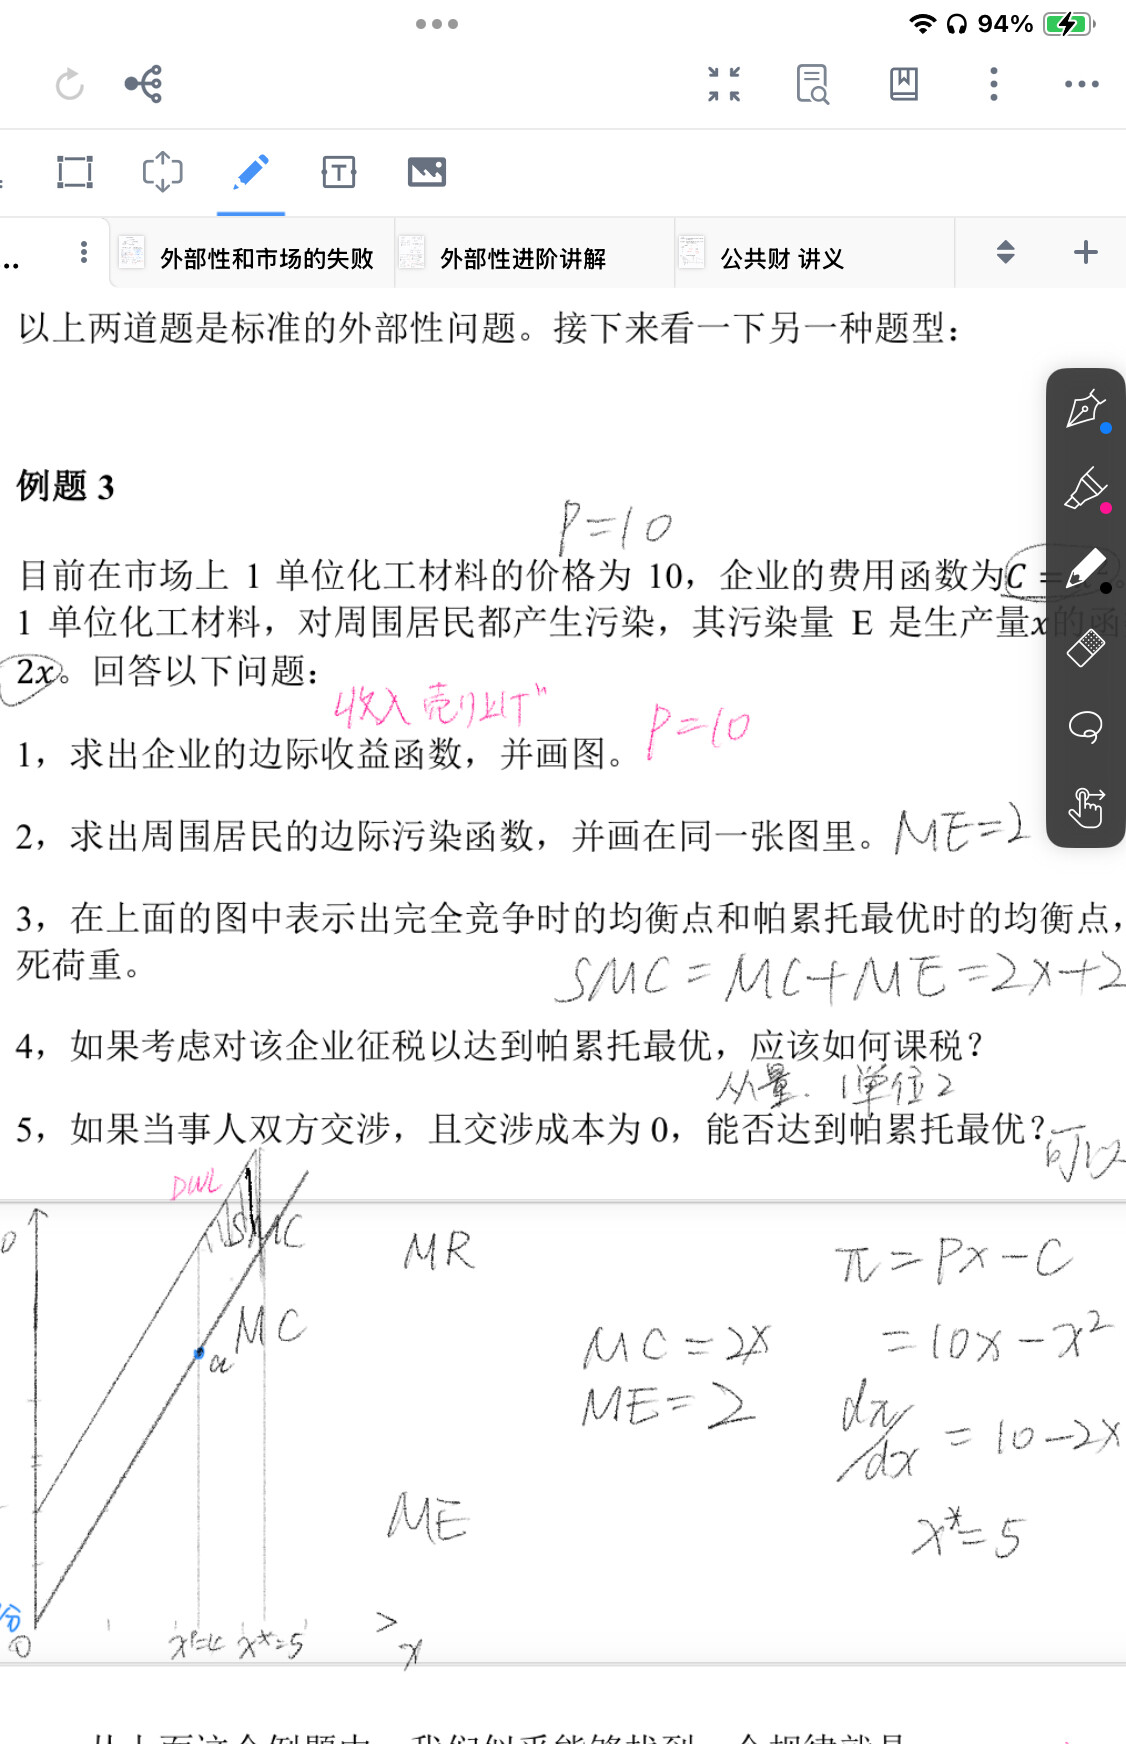 94%
外部性和市场的失败
外部性进阶讲解
公共财 讲义
以上两道题是标准的外部性问题。接下来看一下另一种题型：
例题 3
P=10
目前在市场上 1 单位化工材料的价格为 10，企业的费用函数为C =
1 单位化工材料，对周围居民都产生污染，其污染量 E 是生产量x的函
2x。回答以下问题：
收入 売り上げ
P=10
1，求出企业的边际收益函数，并画图。
2，求出周围居民的边际污染函数，并画在同一张图里。
ME=2
3，在上面的图中表示出完全竞争时的均衡点和帕累托最优时的均衡点，
死荷重。
SMC=MC+ME=2x+2
4，如果考虑对该企业征税以达到帕累托最优，应该如何课税？
从量. 1单位2
5，如果当事人双方交涉，且交涉成本为 0，能否达到帕累托最优？
可以
DWL
SMC
MR
π=Px-C
MC
MC=2x
=10x-x²
a
ME=2
dπ/dx=10-2x
ME
x*=5
分
0
x*=5
x